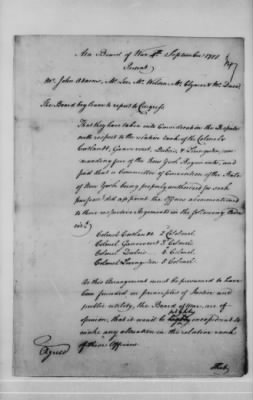 At a Board of War 4th September 1777
Present
Mr. John Adams, Mr. Lee, Mr. Wilson, Mr. Clymer & Mr. Duer
The Board beg leave to report to Congress
That they have taken into Consideration the Disputes
with respect to the relative rank of the Colonels
Cortlandt, Gansevoort, Dubois, & Livingston, com-
manding five of the New York Regiments, and
find that a Committee of Convention of the State
of New York being properly authorized for such
purpose did appoint the officers abovementioned
to their respective Regiments in the following Order
viz.
Colonel Cortlandt 2 Colonel
Colonel Gansevoort 3 Colonel
Colonel Dubois 5 Colonel
Colonel Livingston
As this Arrangement must be presumed to have
been founded in principles of Justice and
public utility, the Board of War, are of
opinion, that it would be highly
highly inexpedient to
make any alteration in the relative rank
of these Officers
Agreed